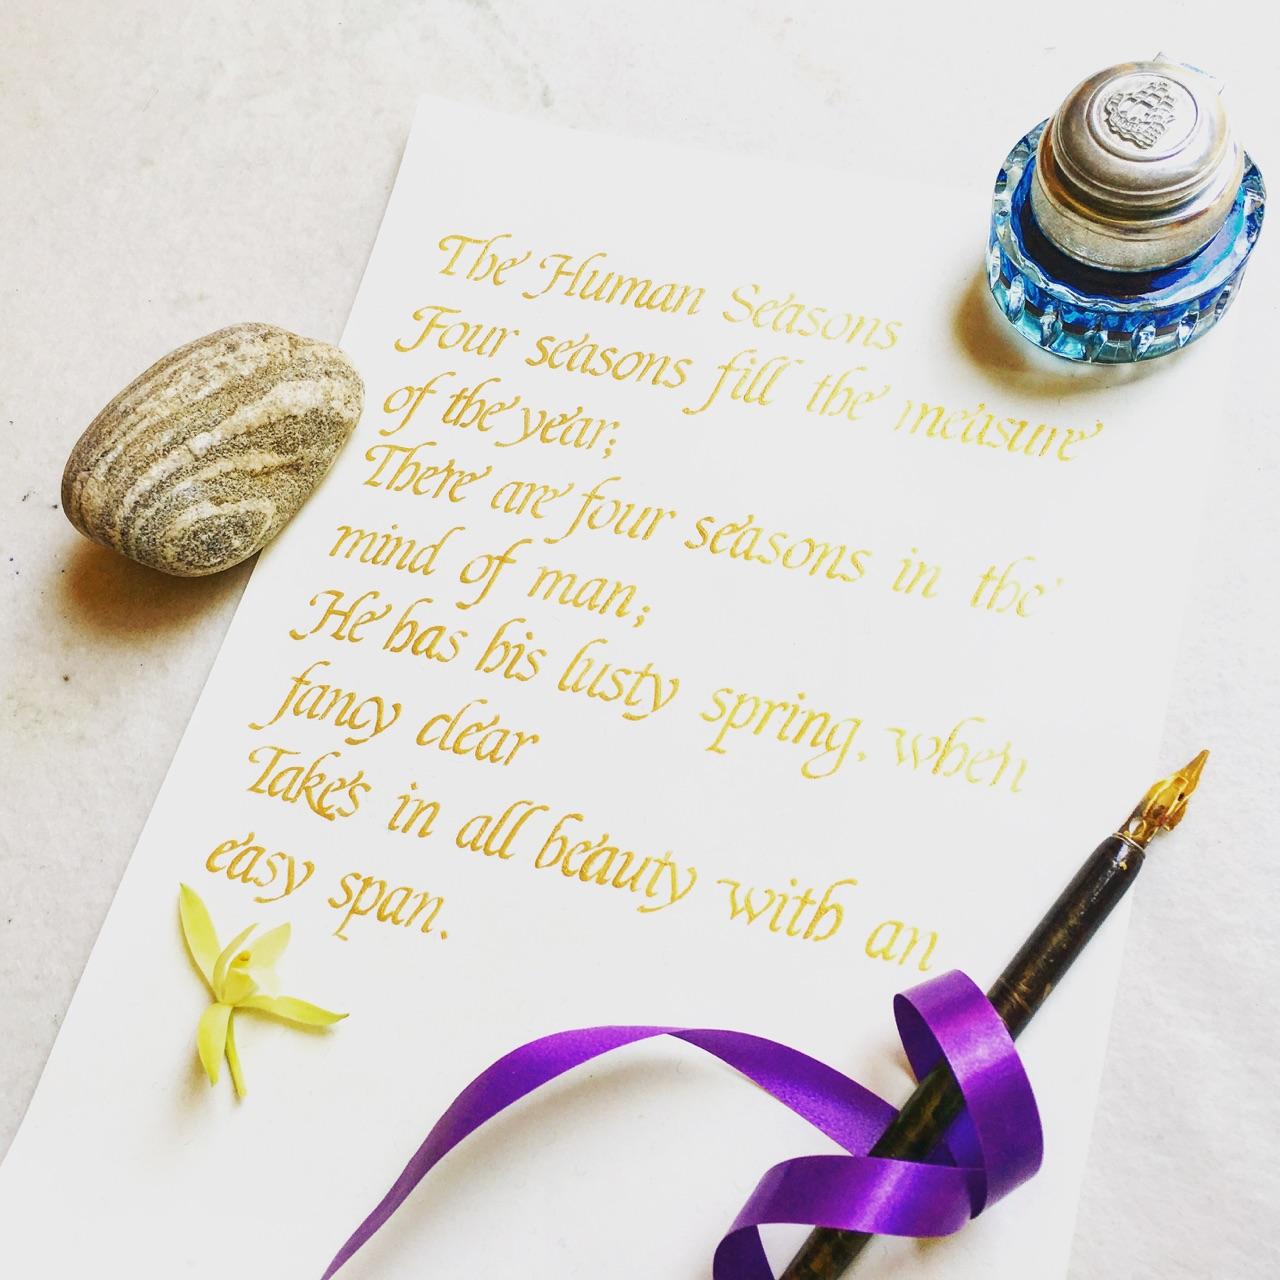 The Human Seasons
Four seasons fill the measure
of the year;
There are four seasons in the
mind of man;
He has his lusty spring, when
fancy clear
Takes in all beauty with an
easy span.